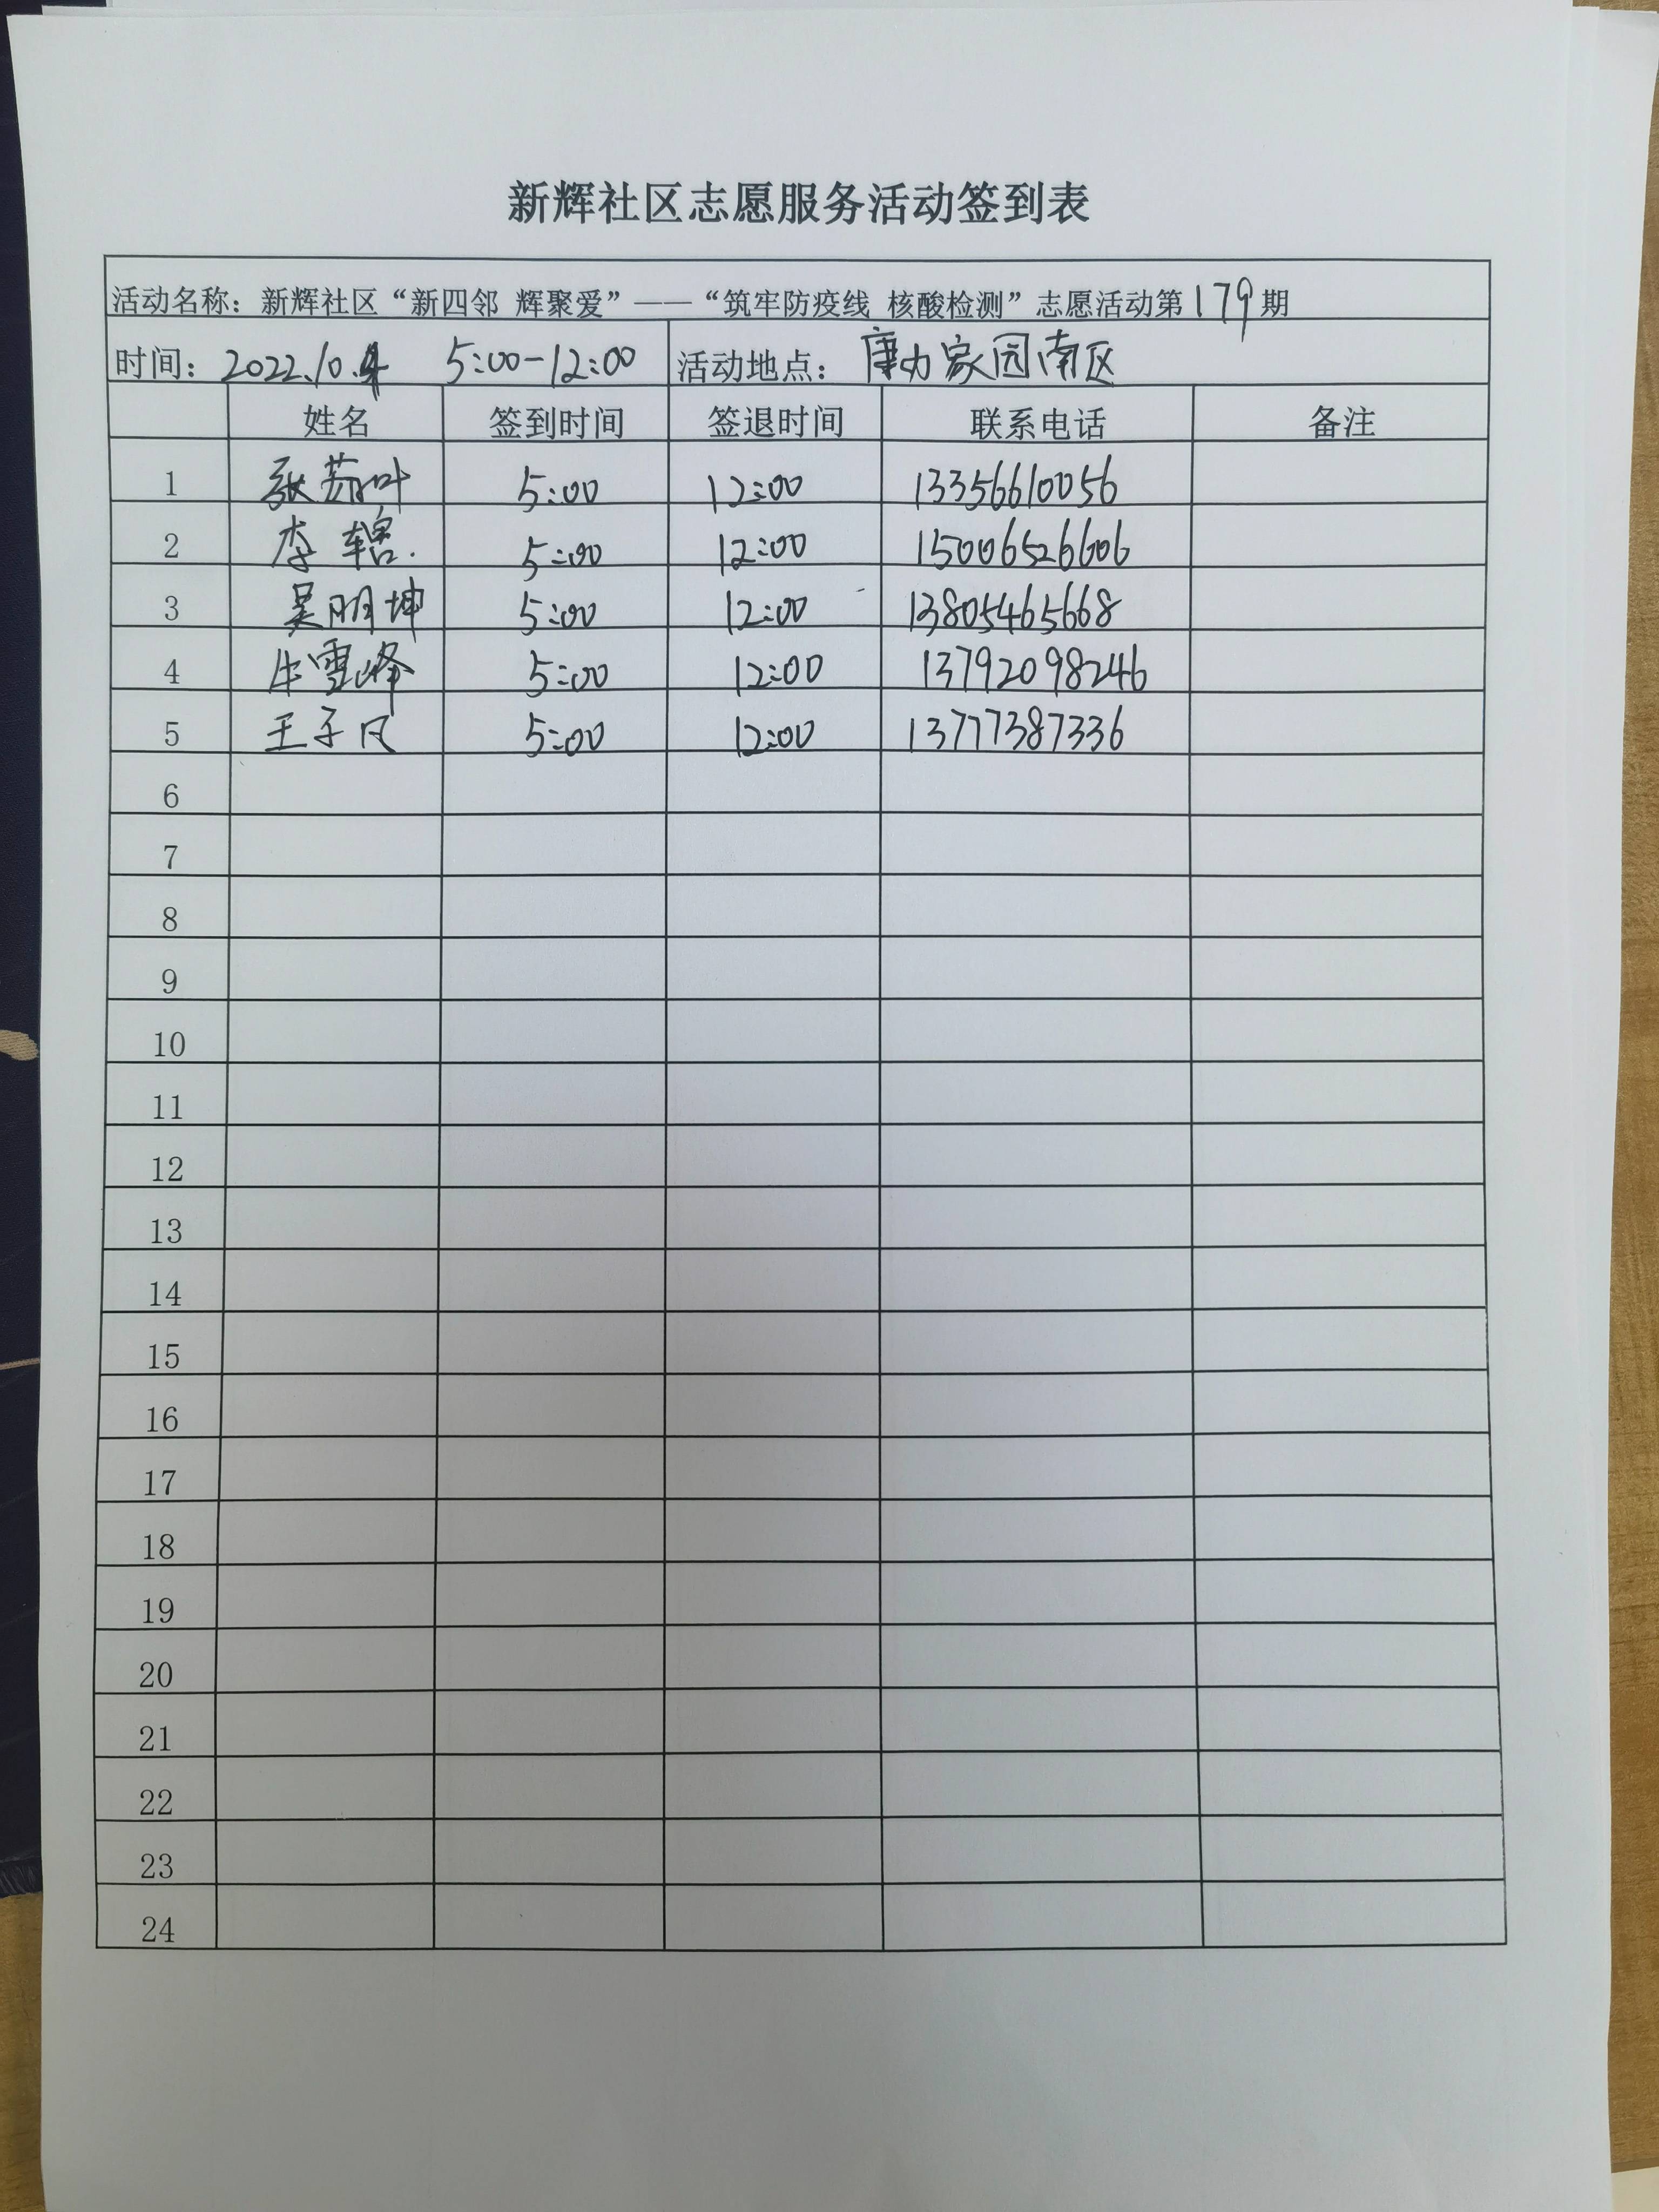 新辉社区志愿服务活动签到表
活动名称：新辉社区“新四邻 辉聚爱”——“筑牢防疫线 核酸检测”志愿活动第179期
时间：2022.10.4 5:00-12:00 活动地点：康力家园南区
姓名 签到时间 签退时间 联系电话 备注
1 张荔叶 5:00 12:00 13356610056
2 李辖. 5:00 12:00 15006526606
3 吴明坤 5:00 12:00 13805465668
4 牛雪峰 5:00 12:00 13792098246
5 王子凡 5:00 12:00 13777387336
6
7
8
9
10
11
12
13
14
15
16
17
18
19
20
21
22
23
24